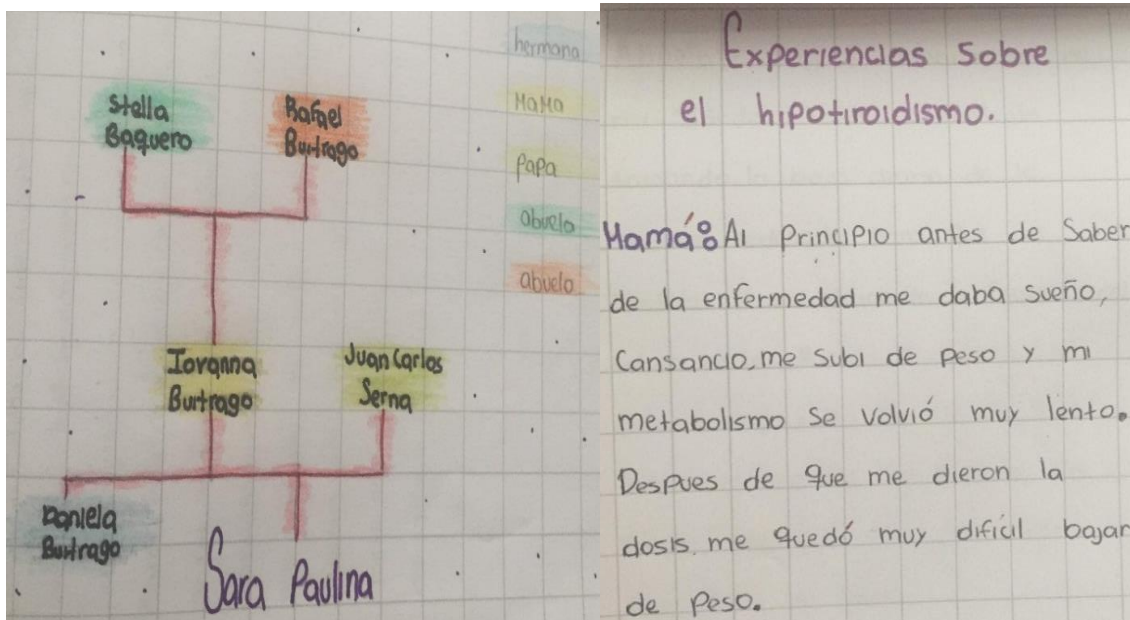 hermana
Mama
Papa
abuela
abuelo
Stella
Baquero
Rafael
Buitrago
Iovanna
Buitrago
Juan Carlos
Serna
Daniela
Buitrago
Sara Paulina
Experiencias Sobre
el hipotiroidismo.
Mamá: Al Principio antes de Saber
de la enfermedad me daba sueño,
Cansancio, me subi de Peso y mi
metabolismo se volvió muy lento.
Despues de que me dieron la
dosis, me quedó muy dificil bajar
de Peso.